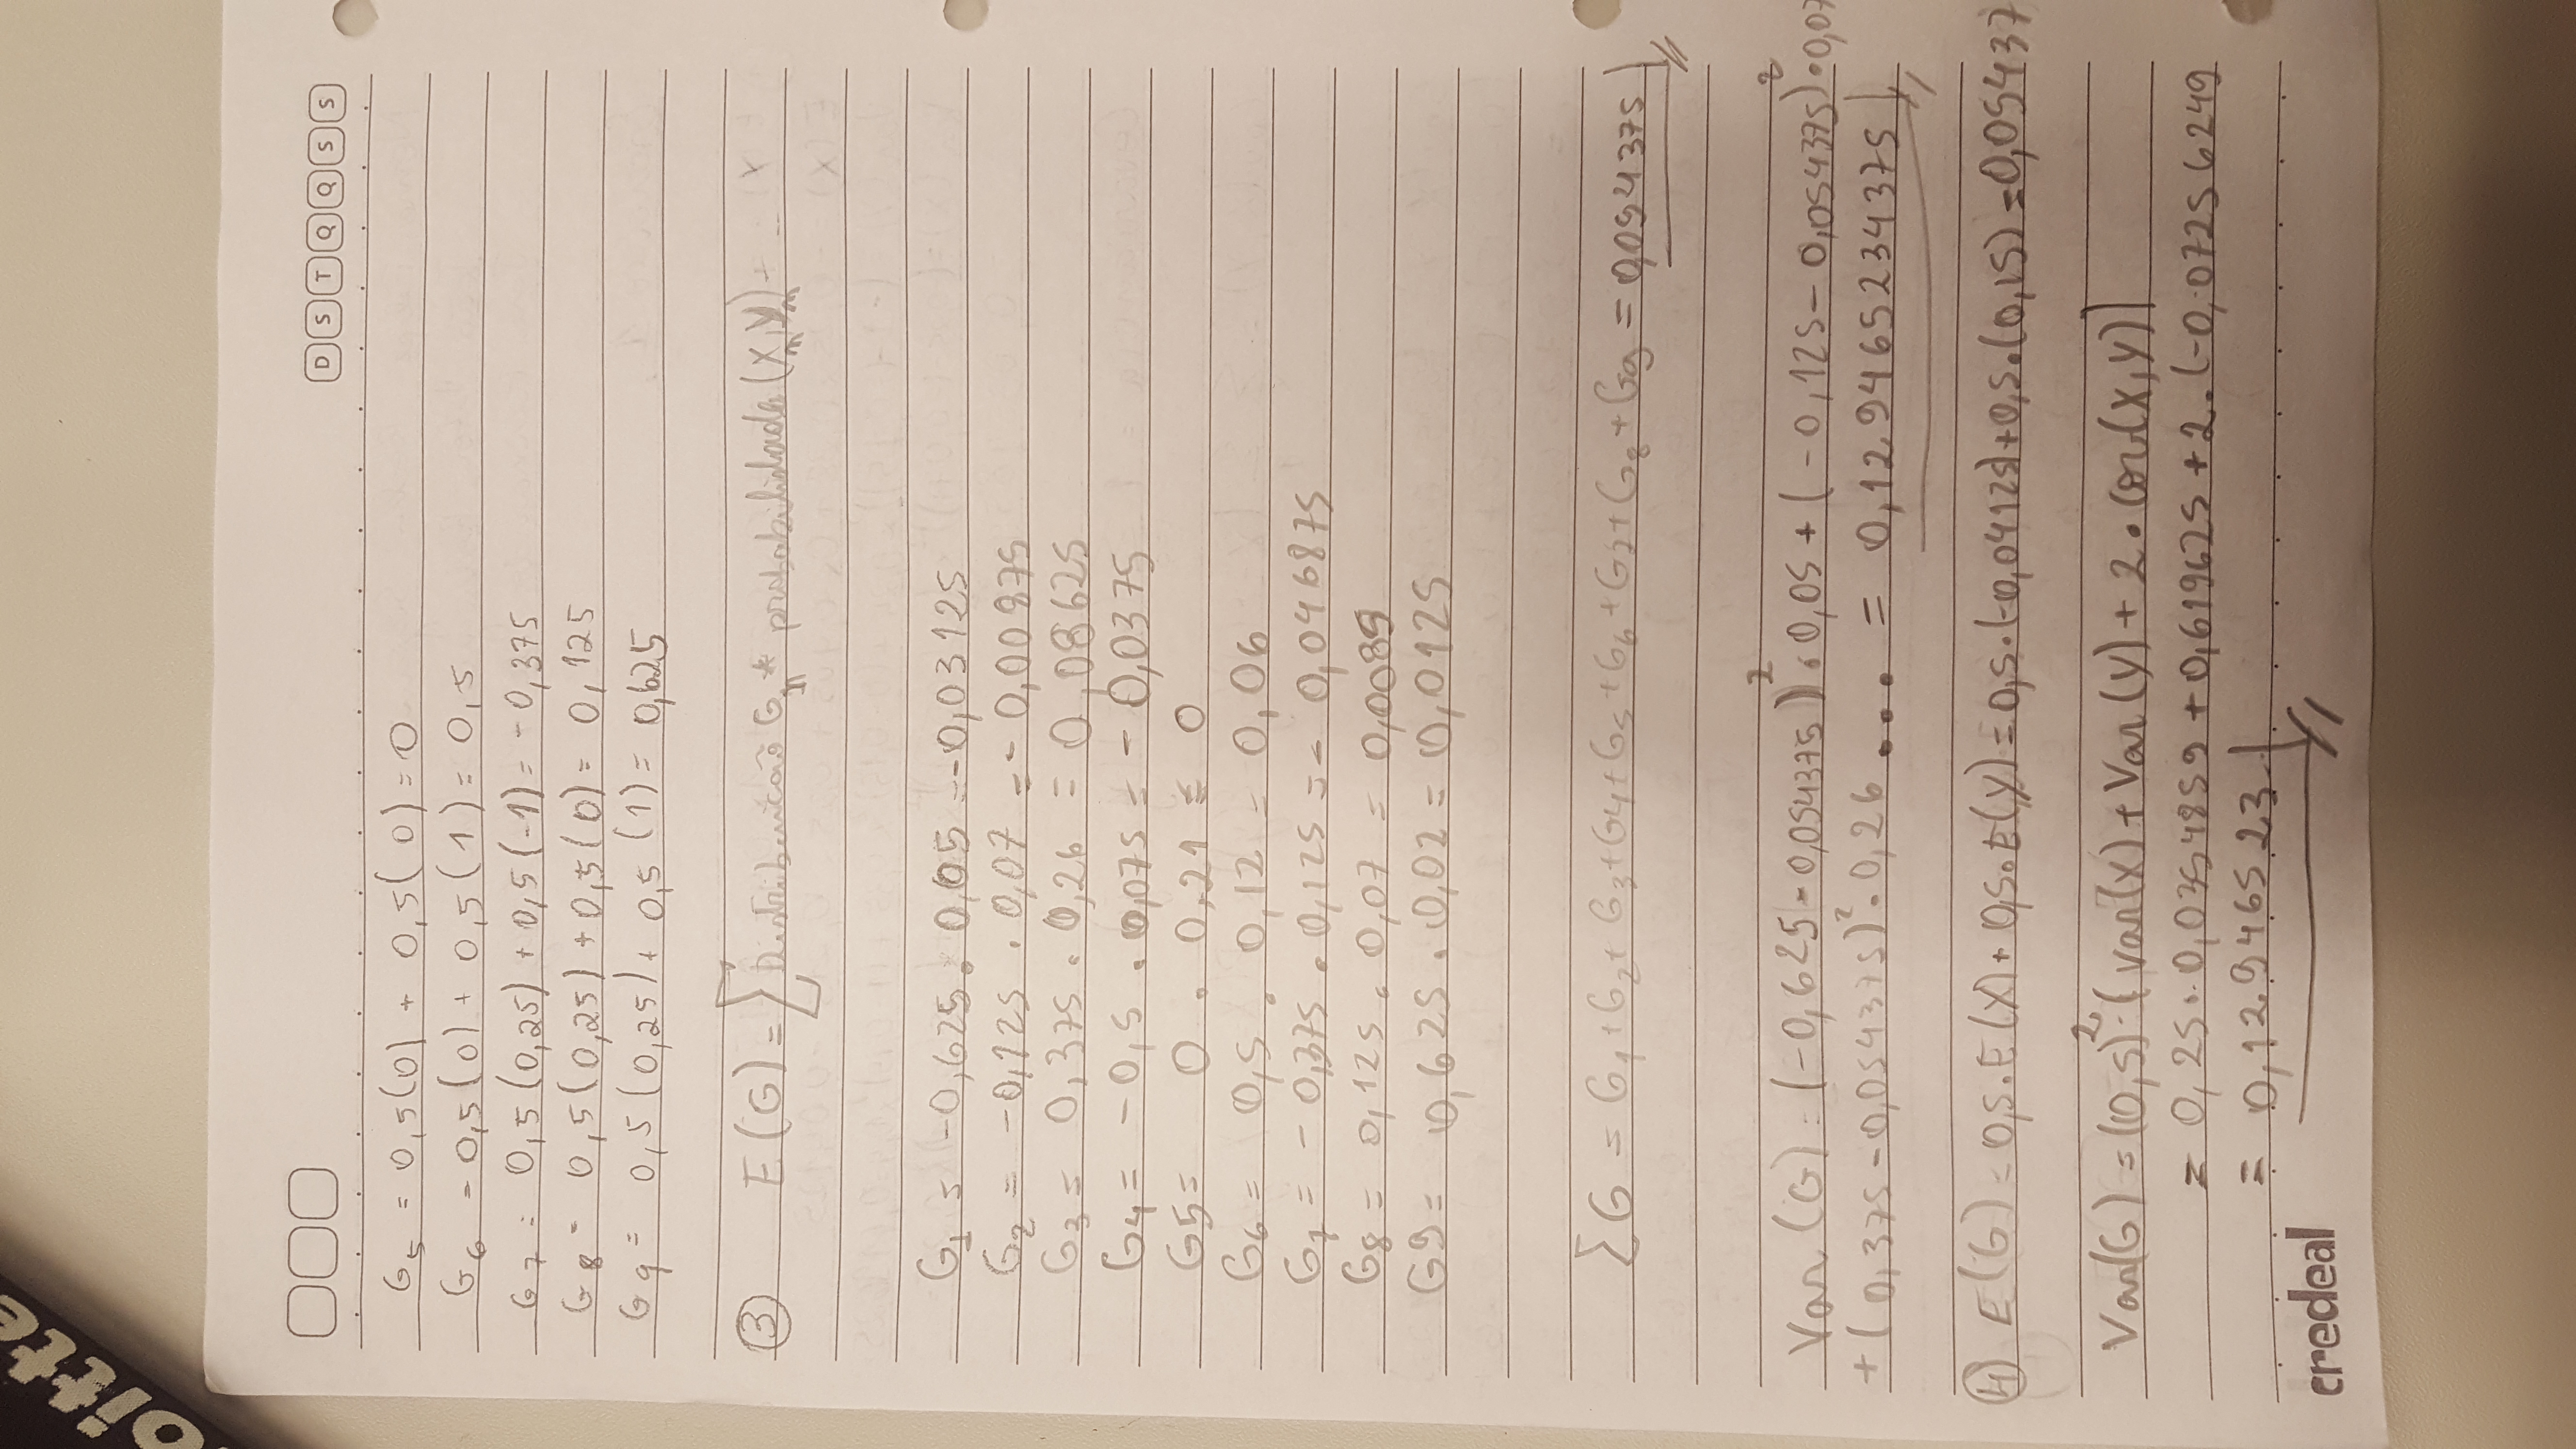 oitte
D S T Q Q S S
G5 = 0,5(0) + 0,5(0) = 0
G6 = 0,5(0) + 0,5(1) = 0,5
G7 = 0,5(0,25) + 0,5(-1) = -0,375
G8 = 0,5(0,25) + 0,5(0) = 0,125
G9 = 0,5(0,25) + 0,5(1) = 0,625
③ E(G) = ∑ Distribuicão Gn * probabilidade (Xn,Yn) + ...
G1 = -0,625 . 0,05 = -0,03125
G2 = -0,125 . 0,07 = -0,00875
G3 = 0,375 . 0,26 = 0,08625
G4 = -0,5 . 0,075 = -0,0375
G5 = 0 . 0,21 = 0
G6 = 0,5 . 0,12 = 0,06
G7 = -0,375 . 0,125 = -0,046875
G8 = 0,125 . 0,07 = 0,0089
G9 = 0,625 . 0,02 = 0,0125
∑G = G1+G2+G3+G4+G5+G6+G7+G8+G9 = 0,054375
Var(G) = (-0,625 - 0,054375)² . 0,05 + (-0,125 - 0,054375)² . 0,07
+ (0,375 - 0,054375)² . 0,26 ... = 0,129465234375
④ E(G) = 0,5.E(X) + 0,5.E(Y) = 0,5.(-0,04125) + 0,5.(0,15) = 0,05437
Var(G) = (0,5)² . (Var(X) + Var(Y) + 2 . Cov(X,Y))
= 0,25 . 0,0354859 + 0,619625 + 2 . (-0,07256249
= 0,12946523
credeal